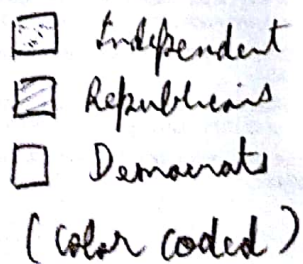 Independent
Republicans
Democrats
(color coded)